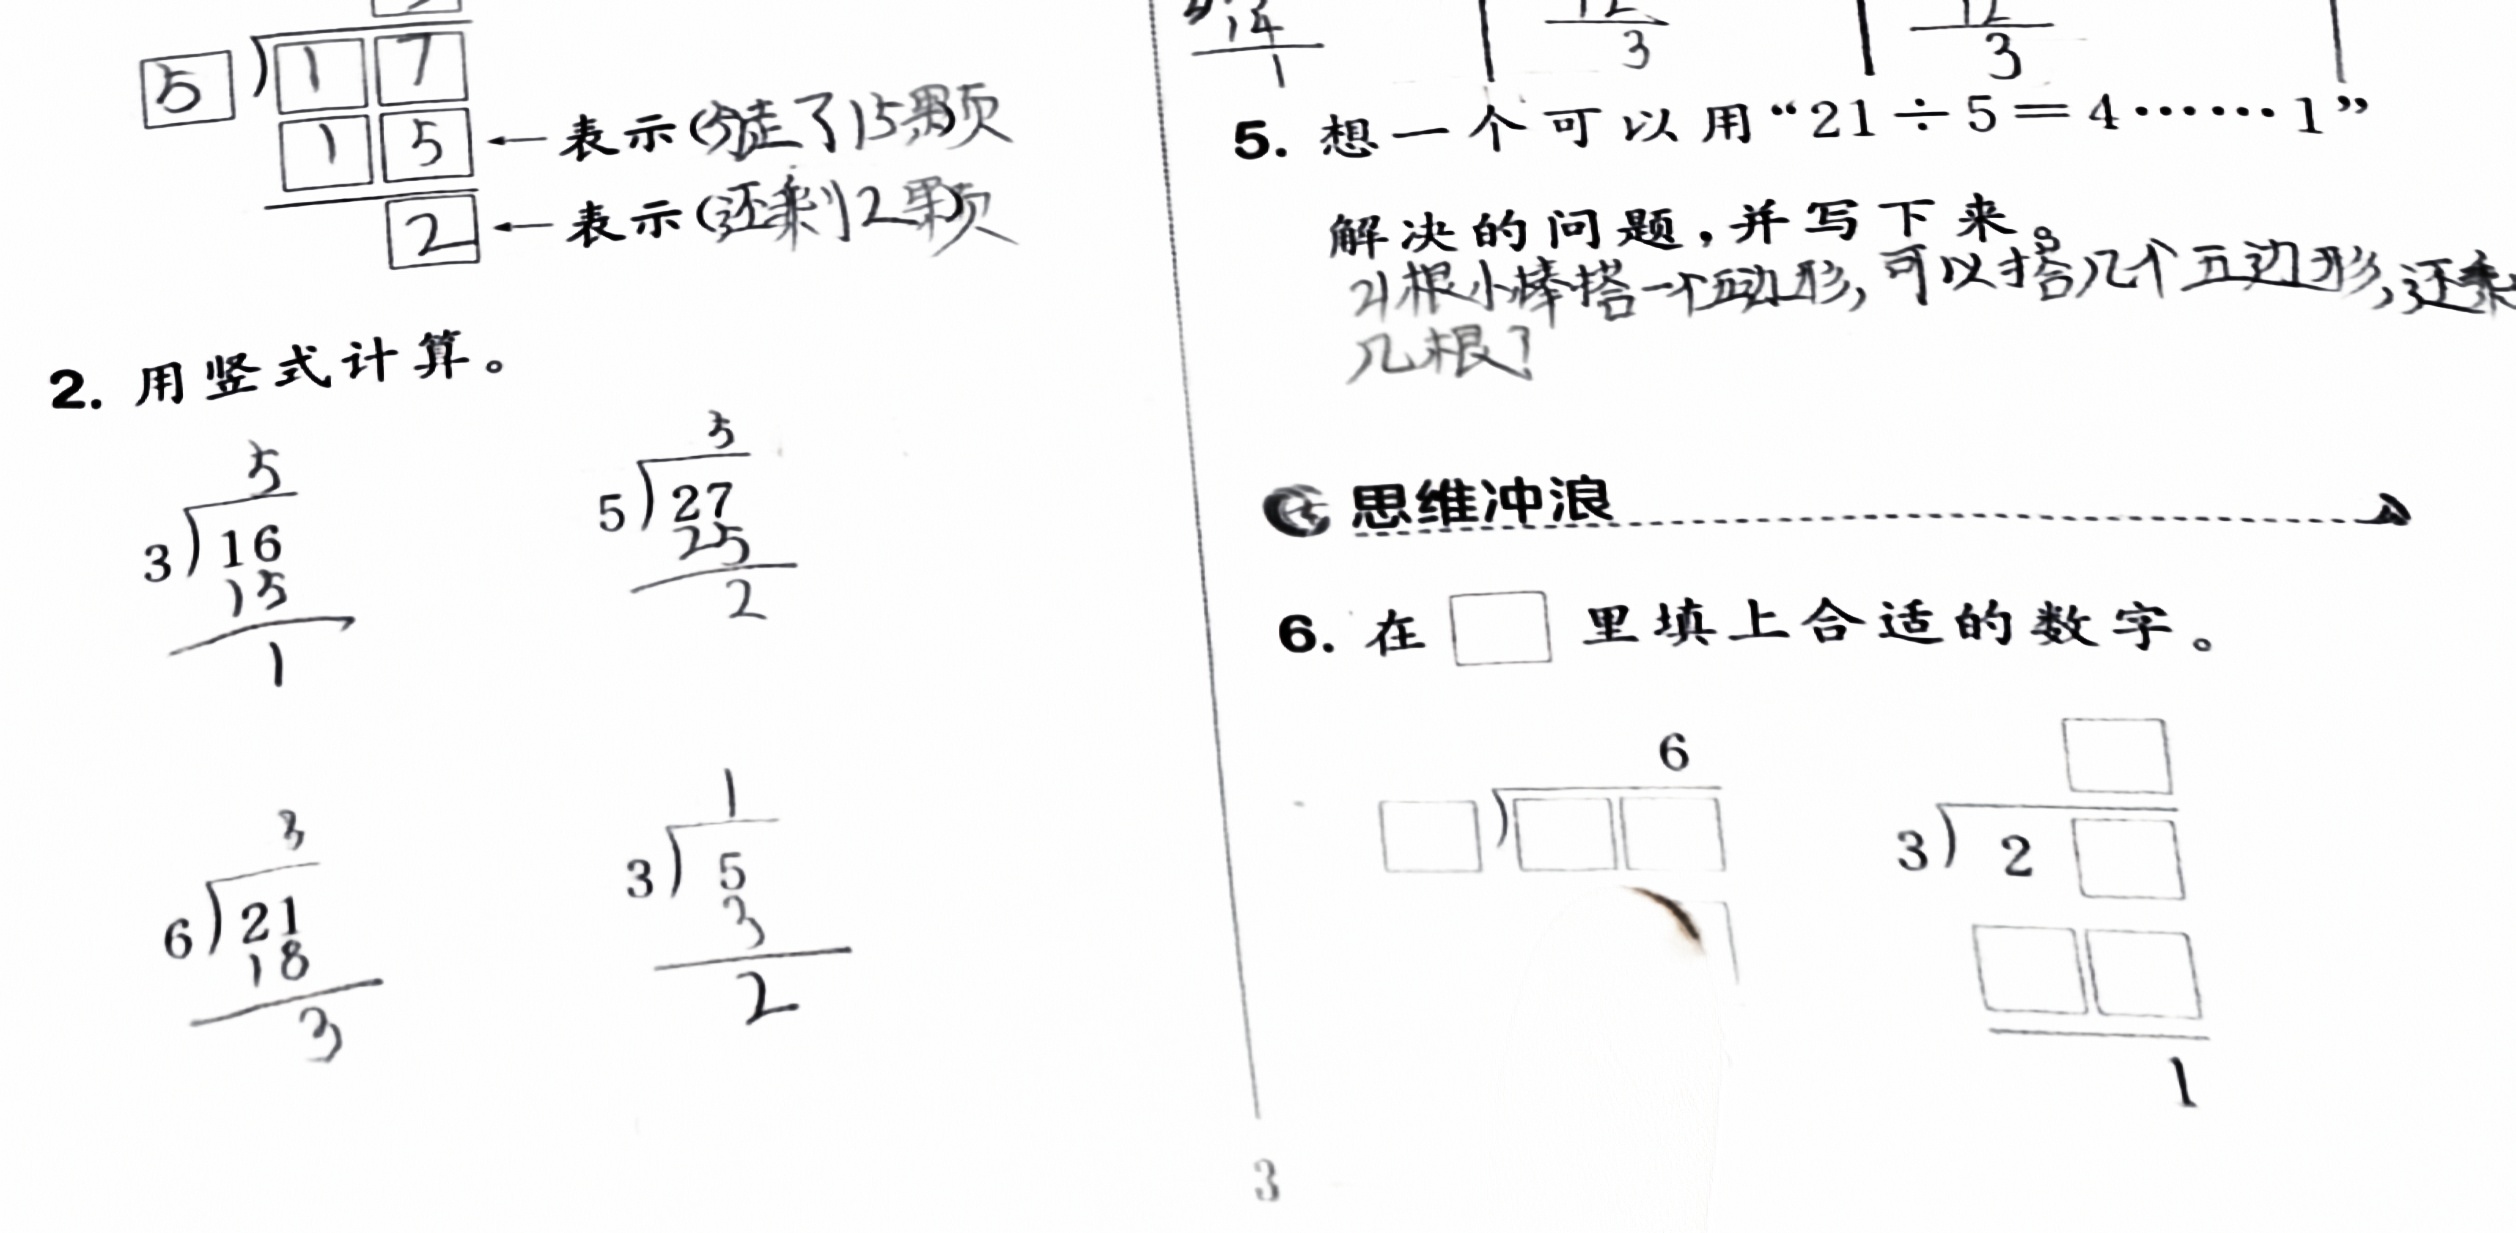 5 17
15 ←表示(分走了15颗)颗
2 ←表示(还剩2颗)颗
2. 用竖式计算。
5
3)16
15
1
5
5)27
25
2
3
6)21
18
3
1
3)5
3
2
14
1
12
3
12
3
5. 想一个可以用“21÷5=4……1”
解决的问题,并写下来。
21根小棒搭一个五边形,可以搭几个五边形,还剩
几根?
思维冲浪
6. 在□里填上合适的数字。
6
3)2
1
3